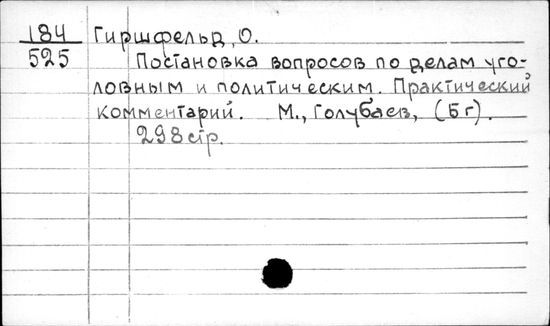 184 Гиршфельд, О.
525 Постановка вопросов по делам уго-
ловным и политическим. Практический
комментарий. М., Голубаев, (Б г).
298 стр.